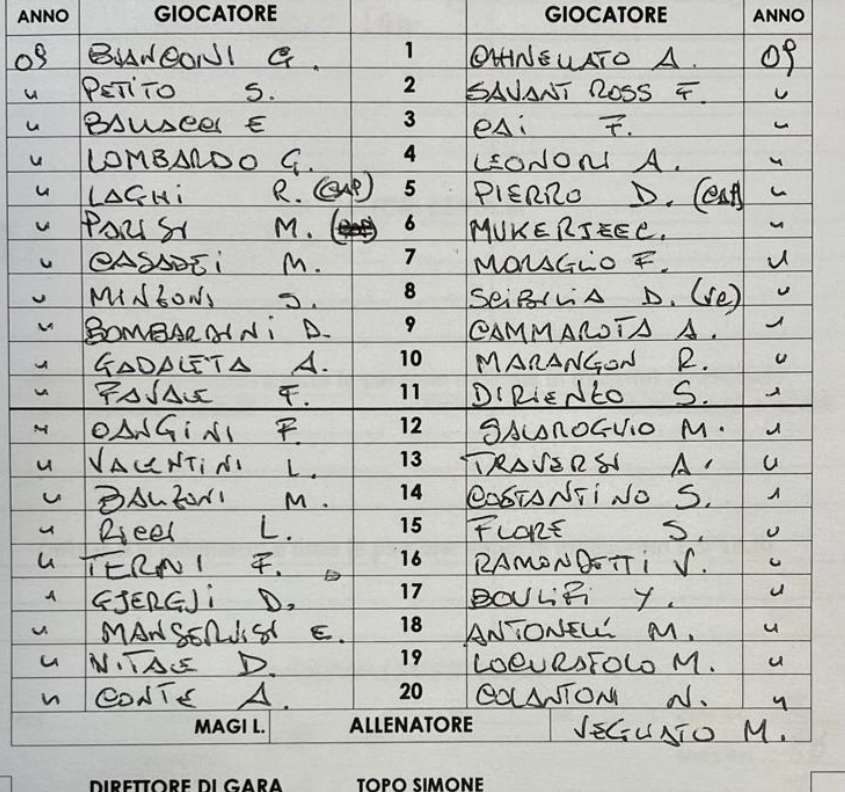 ANNO GIOCATORE GIOCATORE ANNO
09 BIANCONI G. 1 GHINELLATO A. 09
" PETITO S. 2 SAVANT ROSS F. "
" BALLACCI E 3 CAI F. "
" LOMBARDO G. 4 LEONORI A. "
" LAGHI R. (CAP) 5 PIERRO D. (CAP) "
" PARISI M. 6 MUKERJEE C. "
" CASADEI M. 7 MORAGLIO F. "
" MINZONI S. 8 SCIBILIA D. (VC) "
" BOMBARDINI D. 9 CAMMAROTA A. "
" GADALETA A. 10 MARANGON R. "
" FAVALE F. 11 DIRIENZO S. "
" CANGINI F. 12 SALAROGLIO M. "
" VALENTINI L. 13 TRAVERSI A. "
" BALZONI M. 14 COSTANTINO S. "
" RICCI L. 15 FLORE S. "
" TERNI F. 16 RAMONDETTI V. "
" GJERGJI D. 17 BOULIFI Y. "
" MANSERVISI E. 18 ANTONELLI M. "
" NITALE D. 19 LOCURATOLO M. "
" CONTE A. 20 COLANTONI N. "
MAGI L. ALLENATORE VEGLIATO M.
DIRETTORE DI GARA TOPO SIMONE